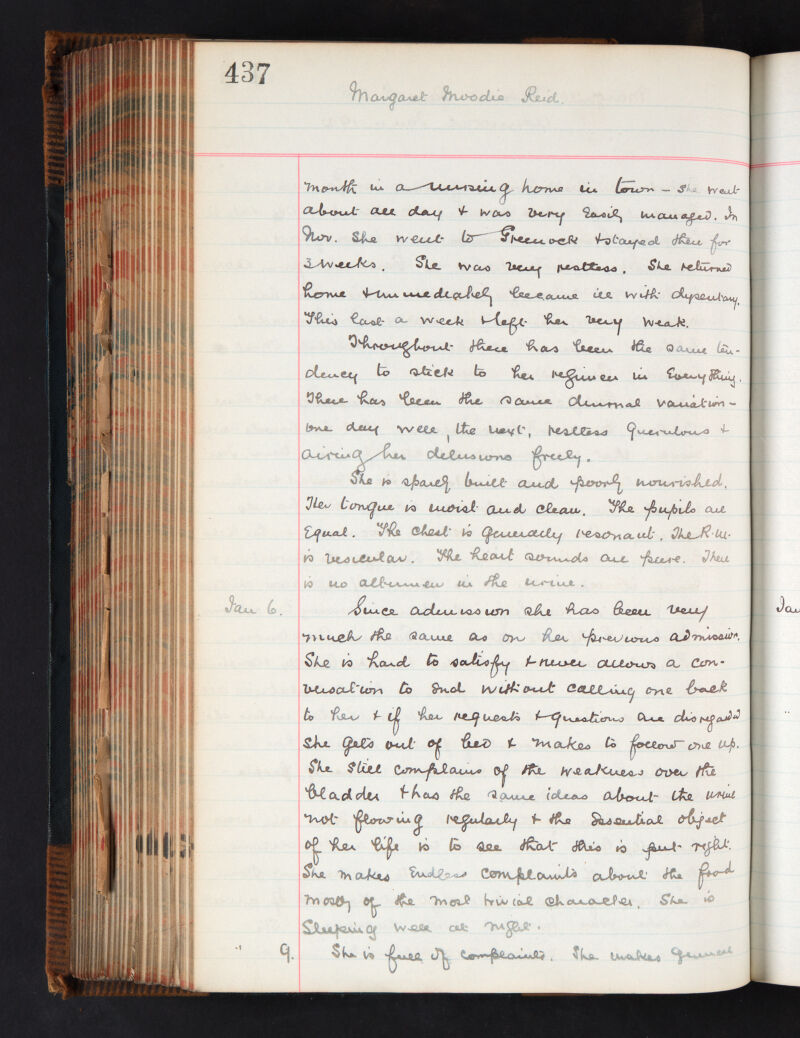 437
Margaret Moodie Reid.
month in a nursing home in town – she went
about all day & was very easily managed. In
Nov. She went to Greenock & stayed there for
3 weeks. She was very restless. She returned
home & immediately became ill with dysentary.
This last a week & left her very weak.
Throughout there has been the same ten-
dency to stick to her regimen in everything.
There has been the same diurnal variation –
one day well, the next, restless querulous &
airing her delusions freely.
She is sparely built and poorly nourished.
Her tongue is moist and clean. The pupils are
Equal. The chest is generally resonant. The R.M.
is vesicular. The heart sounds are pure. There
is no albumen in the urine.
Jan 6. Since admission she has been very
much the same as on her previous admission.
She is hard to satisfy & never allows a con-
versation to end without calling one back
to her & if her requests & questions are disregarded
she gets out of bed & makes to follow one up.
She still complains of the weakness over the
bladder & has the same ideas about the urine
not flowing regularly & the essential object
of her life is to see that this is put right.
She makes endless complaints about the food
mostly of the most trivial character. She is
sleeping well at night.
" 9. She is full of complaints. She makes general
Jan
"